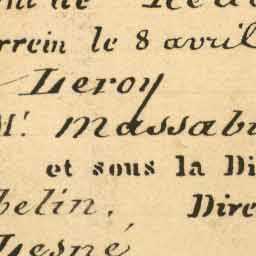 rrein le 8 avril
Leroy
M! Massab
et sous la Di
belin. Dire
Lesné